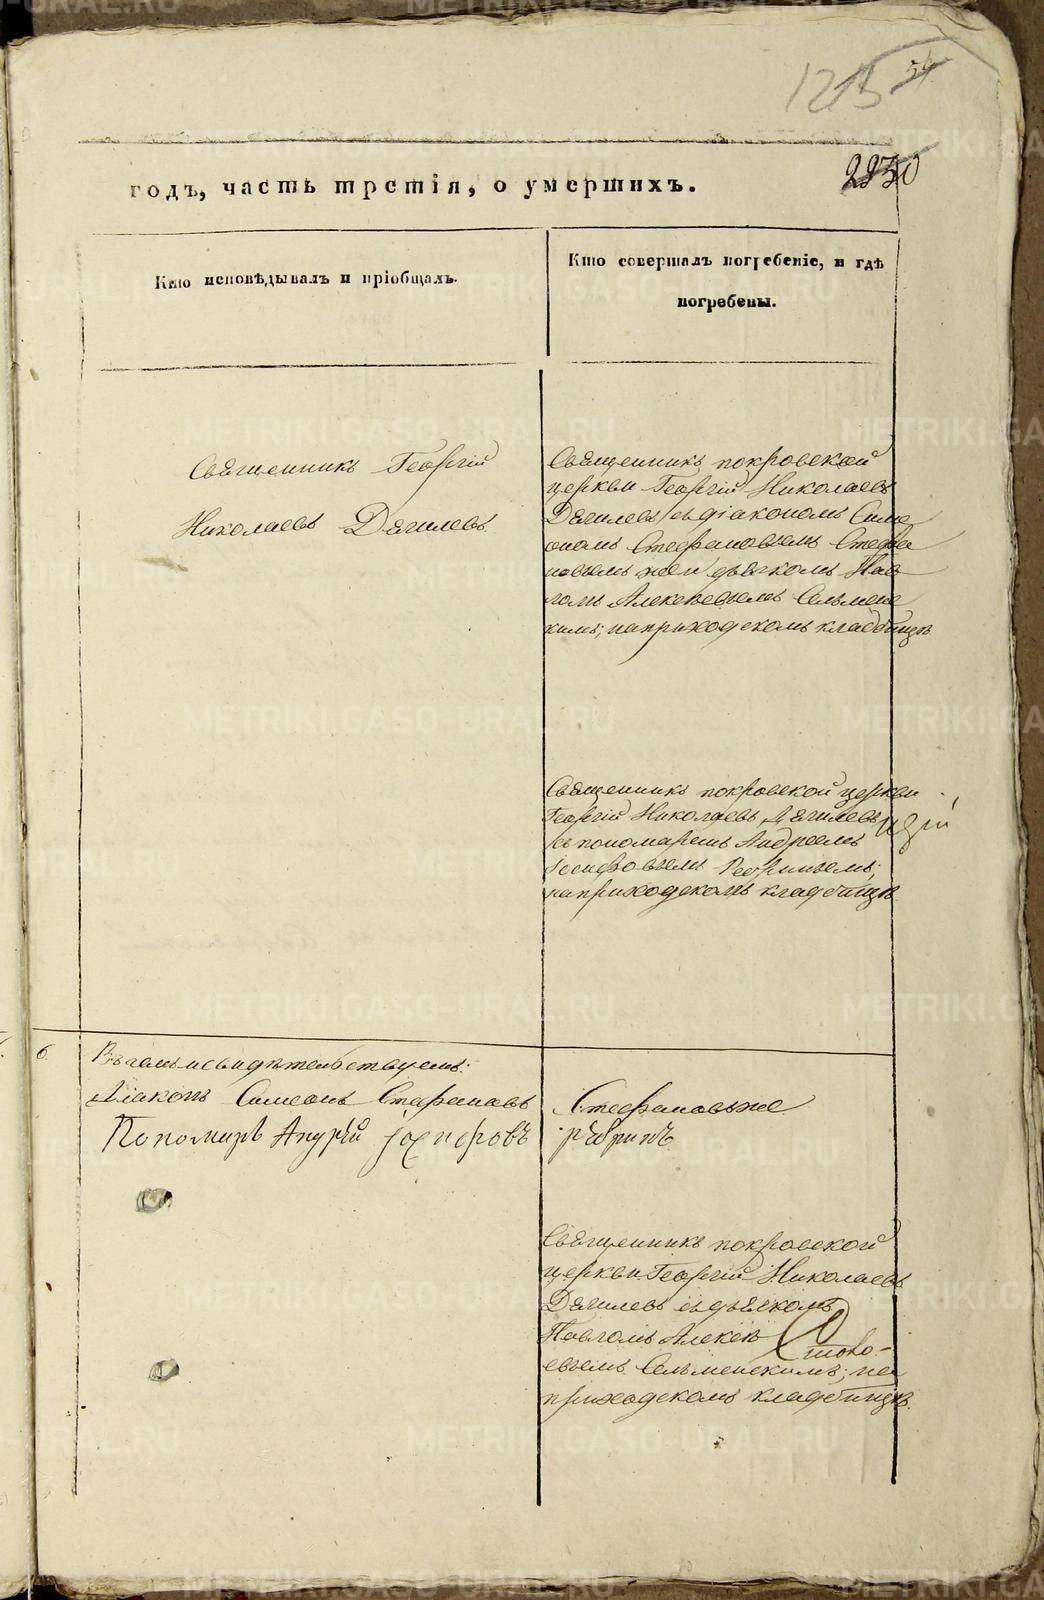 54
1215
2230
годъ, часть третія, о умершихъ.
Кто исповѣдывалъ и пріобщалъ.
Кто совершалъ погребеніе, и гдѣ
погребены.
Священникъ Георгій
Николаевъ Дягилевъ
Священникъ покровской
церкви Георгій Николаевъ
Дягилевъ съ діакономъ Симе
ономъ Стефановымъ Стефа
новымъ же и дьячкомъ Пав
ломъ Алексѣевымъ Сельмен
кимъ; на приходскомъ кладбищѣ
Священникъ покровской церкви
Георгій Николаевъ Дягилевъ
съ пономаремъ Андреемъ
Іосифовымъ
на приходскомъ кладбищѣ.
6.
В томъ свидѣтельствуемъ:
Діаконъ Симеонъ Стефановъ Стефановъ же
Пономарь Андрѣй
Священникъ покровской
церкви Георгій Николаевъ
Дягилевъ съ дьячкомъ
Павломъ Алексѣ
евымъ Сельменскимъ; на
приходскомъ кладбищѣ.
METRIKI.GASO-URAL.RU